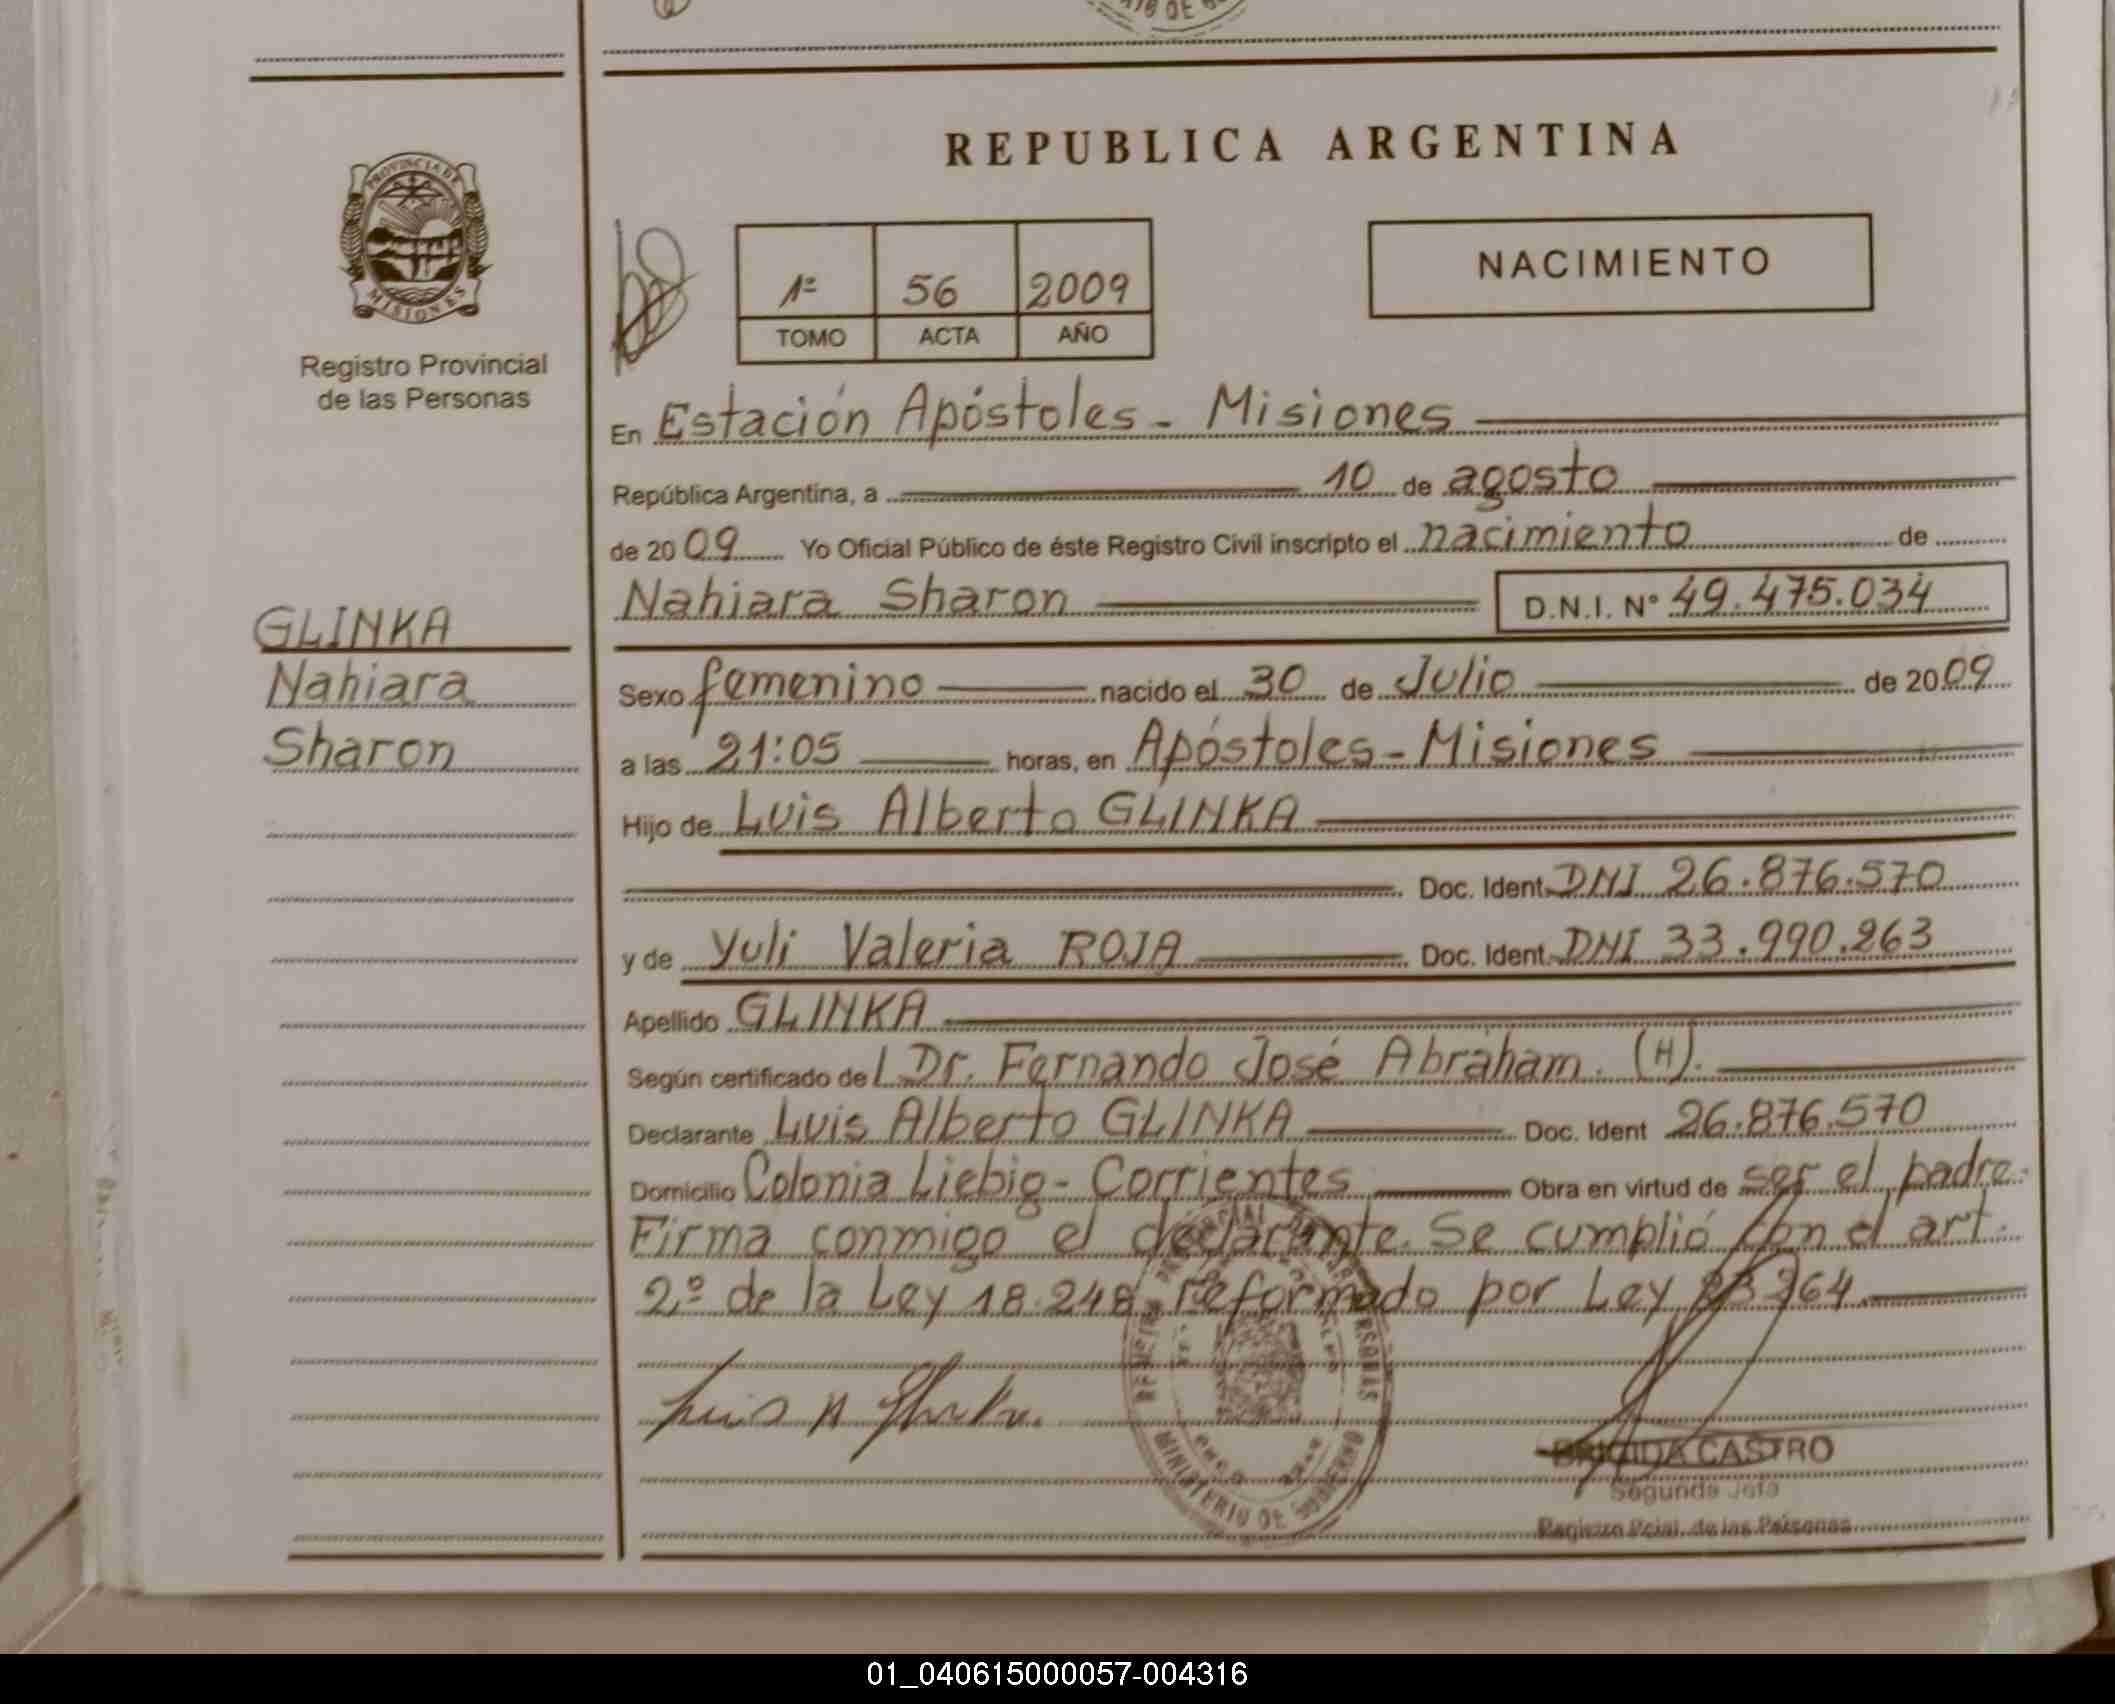 REPUBLICA ARGENTINA
PROVINCIA DE
MISIONES
Registro Provincial
de las Personas
1º 56 2009
TOMO ACTA AÑO
NACIMIENTO
En Estación Apóstoles - Misiones
República Argentina, a 10 de agosto
de 2009 Yo Oficial Público de éste Registro Civil inscripto el nacimiento de
Nahiara Sharon D.N.I. Nº 49.475.034
GLINKA
Nahiara
Sharon
Sexo femenino nacido el 30 de Julio de 2009
a las 21:05 horas, en Apóstoles - Misiones
Hijo de Luis Alberto GLINKA
Doc. Ident. DNI 26.876.570
y de Yuli Valeria ROJA Doc. Ident. DNI 33.990.263
Apellido GLINKA
Según certificado del Dr. Fernando José Abraham. (H).
Declarante Luis Alberto GLINKA Doc. Ident 26.876.570
Domicilio Colonia Liebig - Corrientes Obra en virtud de ser el padre.
Firma conmigo el declarante. Se cumplió con el art.
2º de la Ley 18.248 reformado por Ley 23264
Luis A Glinka.
MINISTERIO DE GOBIERNO
BRIGIDA CASTRO
Segunda Jefa
Registro Pcial. de las Personas
01_040615000057-004316